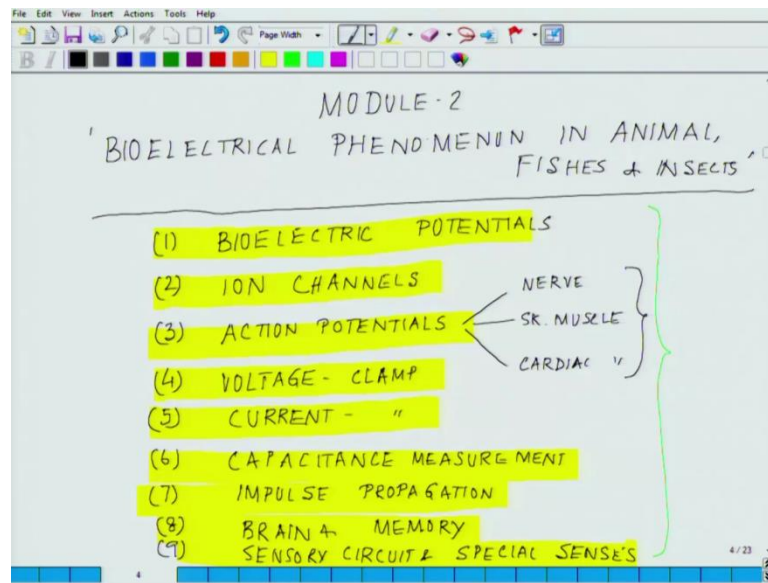 File Edit View Insert Actions Tools Help
Page Width
B I
MODULE-2
'BIOELECTRICAL PHENOMENON IN ANIMAL,
FISHES & INSECTS'
(1) BIOELECTRIC POTENTIALS
(2) ION CHANNELS
(3) ACTION POTENTIALS
NERVE
SK. MUSCLE
CARDIAC "
(4) VOLTAGE - CLAMP
(5) CURRENT - "
(6) CAPACITANCE MEASUREMENT
(7) IMPULSE PROPAGATION
(8) BRAIN & MEMORY
(9) SENSORY CIRCUIT & SPECIAL SENSE'S
4/23
4